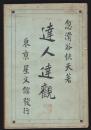 忽滑谷快天著
達人達觀
東京 星文館發行